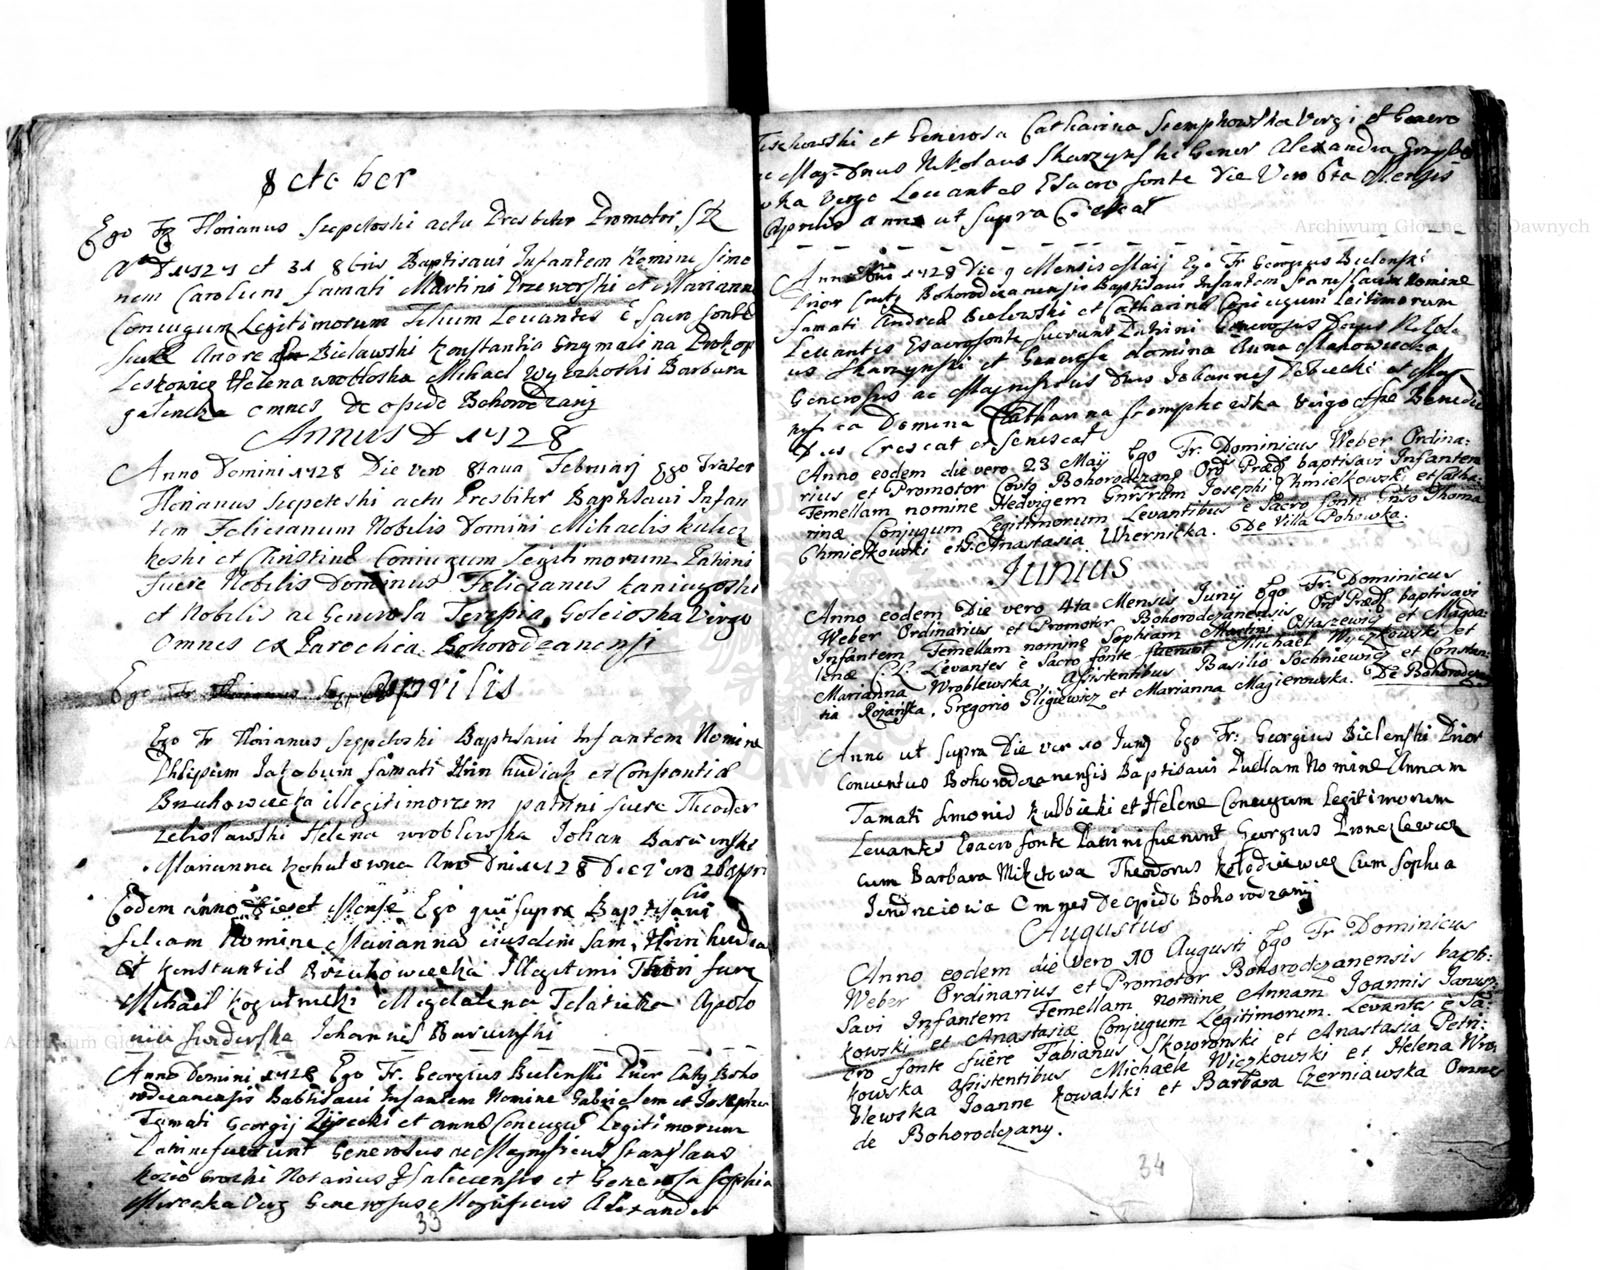 8cto ber
Ego Fr Florianus Szepetoski actu Presbiter Promotor
A D 1727 et 31 8bris Baptisavi Infantem Nomine Simo
nem Carolum famati Martini Przeworski et Marianna
Coniugum Legitimorum Filium Levantes e Sacro fonte
fuere Andre Bielawski Konstantia Grzymalina Prokop
Leskowicz Helena wrobloska Mihael Wyczkoski Barbara
galencka omnes de opido Bohorodzany
Annus D 1728
Anno Domini 1728 Die vero 8tava Februarij Ego Frater
Florianus Szepetoski actu Presbiter Baptisavi Infan
tem Felicianum Nobilis Domini Mihaelis
koski et Christine Coniugum Legitimorum Patrini
fuere Nobilis Dominus Felicianus Kaniugoski
et Nobilis ac Generosa Teresia Goleioska Virgo
Omnes ex Parochia Bohorodzanensi
Ego Fr Florianus Aprilis
Ego Fr Florianus Szepetoski Baptisavi Infantem Nomine
Philipum Jakobum famati Hrin hudiak et Constantiæ
Bzuhowiecka illegitimorum patrini fuere Theodor
Zelislawski Helena wroblewska Johan Barwinski
Marianna Kohutowna Anno Dni 1728 Die Vero 26 Apri
lis
Eodem anno die et Mense Ego qui supra Baptisavi
filiam Nomine Marianna eiusdem fam. Hrin hudia
et Konstantiæ Bzuhowiecka Illegitimi Thori fure
Mihael Kogutnicki Migdalena Telaticka Apolo
nia Swiderska Johannes Barwinski
Anno Domini 1728 Ego Fr. Georgius Bielenski Prior Cntq Boho
rodczanensis Babtisavi Infantem Nomine Gabrielem et Josephum
Famati Georgij et annæ Coniugum Legitimorum
Patrini fuerunt Generosus ac Magnificus Stanislaus
Kozio Notarius Haliciensis et Generosa Sophia
Mirecka Virg Generosus Magnificus Alexander
33
et Generosa Catharina Stempkowska Virgi et Genero
Mag Dnus Nikolaus Skarzynski Gener Alexandra
wka Virgo Levantes E sacro fonte die Vero 6ta Mensis
Aprilis anno ut supra Crescat
Anno Dni 1728 Die 9 Mensis Maij Ego Fr Georgius Bielenski
Prior Cntq Bohorodczanensis Baptisavi Infantem Stanislaum Nomine
famati Andreæ Bielowski et Catharinæ Coniugum Leitimorum
Levantes E sacro fonte fuerunt Patrini Generosus Dnus Nikola
us Skarzynski et Generosa domina Anna Makowiecka
Generosus ac Magnificus Dnus Johannes Debiecki et Mag
nifica Domina Catharina Stempkoska Virgo
Deus Crescat et seniscat
Anno eodem die vero 23 Maij Ego Fr. Dominicus Weber Ordina:
rius et Promotor Cntq Bohorodczans Ord Præd baptisavi Infantem
Femellam nomine Hedvigem Gnrsrum Josephi Chmielkowski et Catha:
rinæ Conjugum Legitimorum Levantibus è Sacro fonte Gnso Thoma
Chmielkowski et G: Anastasia Uhernicka. De Villa Pohowka.
Junius
Anno eodem Die vero 4ta Mensis Junij Ego Fr. Dominicus
Weber Ordinarius et Promotor Bohorodczanensis Ord Præd baptisavi
Infantem Femellam nomine Sophiam Martini Ostaszewicz et Magda:
lenæ C. L. Levantes è Sacro fonte fuerunt Michael Wiczkowski et
Marianna Wroblewska, assistentibus Basilio Sochniewicz et Constan:
tia Rozanska, Gregorio Eligiewicz et Marianna Majerowska. De Bohorodczany
Anno ut supra Die ver 10 Junij Ego Fr: Georgius Bielenski Prior
Conventus Bohorodczanensis Baptisavi Puellam Nomine Annam
Famati Simonis Kulbicki et Helene Coniugum Legitimorum
Levantes E sacro fonte Patrini fuerunt Georgius Pronczlewicz
cum Barbara Mikitowa Theodorus Kolodziewicz Cum Sophia
Jendrzeiowa Omnes De opido Bohorodzanij
Augustus
Anno eodem die vero 10 Augusti Ego Fr Dominicus
Weber Ordinarius et Promotor Bohorodczanensis bapti:
savi Infantem Femellam nomine Annam Joannis Janusz:
kowski et Anastasiæ Conjugum Legitimorum. Levantes è Sa:
cro fonte fuêre Fabianus Skowronski et Anastasia Petri:
kowska assistentibus Michaele Wiczkowski et Helena Wro:
blewska Joanne Kowalski et Barbara Czerniawska Omnes
de Bohorodczany.
34
Archiwum Główne Akt Dawnych